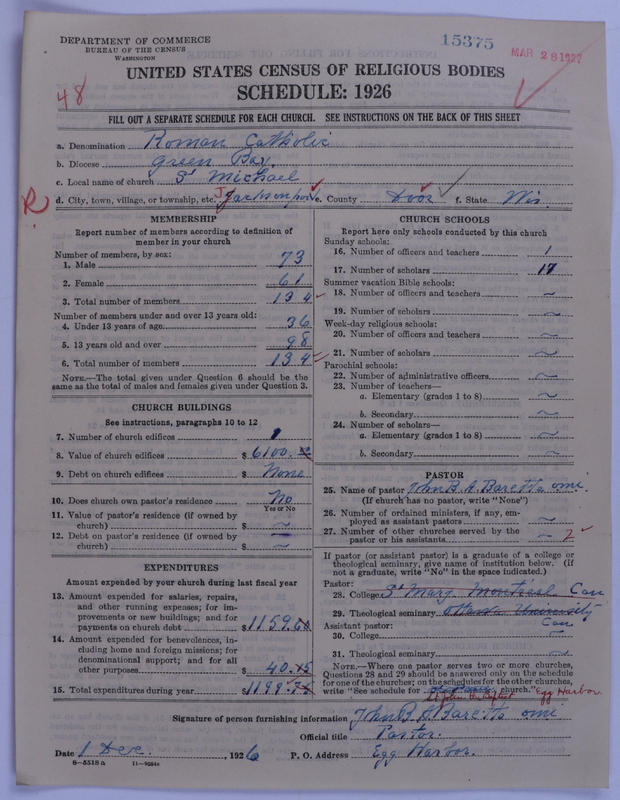 DEPARTMENT OF COMMERCE
BUREAU OF THE CENSUS
WASHINGTON
15375
MAR 28 1927
UNITED STATES CENSUS OF RELIGIOUS BODIES
SCHEDULE: 1926
48
FILL OUT A SEPARATE SCHEDULE FOR EACH CHURCH. SEE INSTRUCTIONS ON THE BACK OF THIS SHEET
a. Denomination Roman Catholic
b. Diocese Green Bay
c. Local name of church St Michael
R
d. City, town, village, or township, etc. Jacksonport e. County Door f. State Wis.
MEMBERSHIP
Report number of members according to definition of member in your church
Number of members, by sex:
1. Male 73
2. Female 61
3. Total number of members 134
Number of members under and over 13 years old:
4. Under 13 years of age 36
5. 13 years old and over 98
6. Total number of members 134
NOTE.—The total given under Question 6 should be the
same as the total of males and females given under Question 3.
CHURCH BUILDINGS
See instructions, paragraphs 10 to 12
7. Number of church edifices 1
8. Value of church edifices $ 6100.
9. Debt on church edifices $ None
10. Does church own pastor's residence No
Yes or No
11. Value of pastor's residence (if owned by
church) $ ~
12. Debt on pastor's residence (if owned by
church) $ ~
EXPENDITURES
Amount expended by your church during last fiscal year
13. Amount expended for salaries, repairs,
and other running expenses; for im-
provements or new buildings; and for
payments on church debt $ 1159.
14. Amount expended for benevolences, in-
cluding home and foreign missions; for
denominational support; and for all
other purposes $ 40.
15. Total expenditures during year $ 1199.
CHURCH SCHOOLS
Report here only schools conducted by this church
Sunday schools:
16. Number of officers and teachers 1
17. Number of scholars 17
Summer vacation Bible schools:
18. Number of officers and teachers ~
19. Number of scholars ~
Week-day religious schools:
20. Number of officers and teachers ~
21. Number of scholars ~
Parochial schools:
22. Number of administrative officers ~
23. Number of teachers—
a. Elementary (grades 1 to 8) ~
b. Secondary ~
24. Number of scholars—
a. Elementary (grades 1 to 8) ~
b. Secondary ~
PASTOR
25. Name of pastor John B. A. Baretta omi.
(If church has no pastor, write "None")
26. Number of ordained ministers, if any, em-
ployed as assistant pastors ~
27. Number of other churches served by the
pastor or his assistants 2
If pastor (or assistant pastor) is a graduate of a college or
theological seminary, give name of institution below. (If
not a graduate, write "No" in the space indicated.)
Pastor:
28. College St Mary, Montreal Can
29. Theological seminary Ottawa University
Assistant pastor: Can
30. College ~
31. Theological seminary ~
NOTE.—Where one pastor serves two or more churches,
Questions 28 and 29 should be answered only on the schedule
for one of the churches; on the schedules for the other churches,
write "See schedule for St John the Baptist church." Egg Harbor
Signature of person furnishing information John B A Baretta omi
Official title Pastor.
Date 1 Dec. 1926 P. O. Address Egg Harbor.
8—5518 a